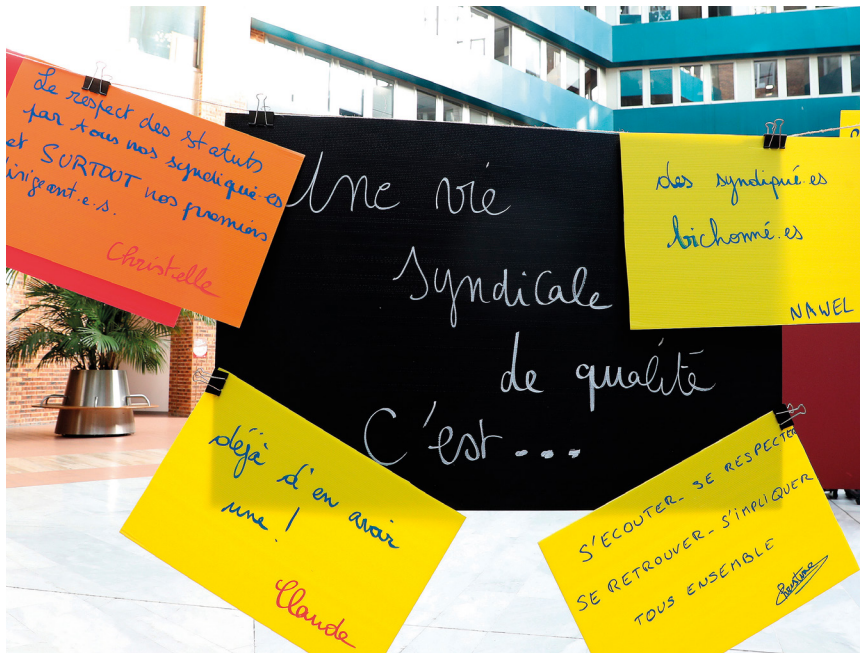 Le respect des statuts
par tous nos syndiqué·es
et SURTOUT nos premiers
dirigeant.e.s.
Christelle
Une vie
Syndicale
de qualité
C'est...
des syndiqué·es
bichonné·es
NAWEL
déjà d'en avoir
une !
Claude
S'ECOUTER_ SE RESPECTER
SE RETROUVER_ S'IMPLIQUER
TOUS ENSEMBLE